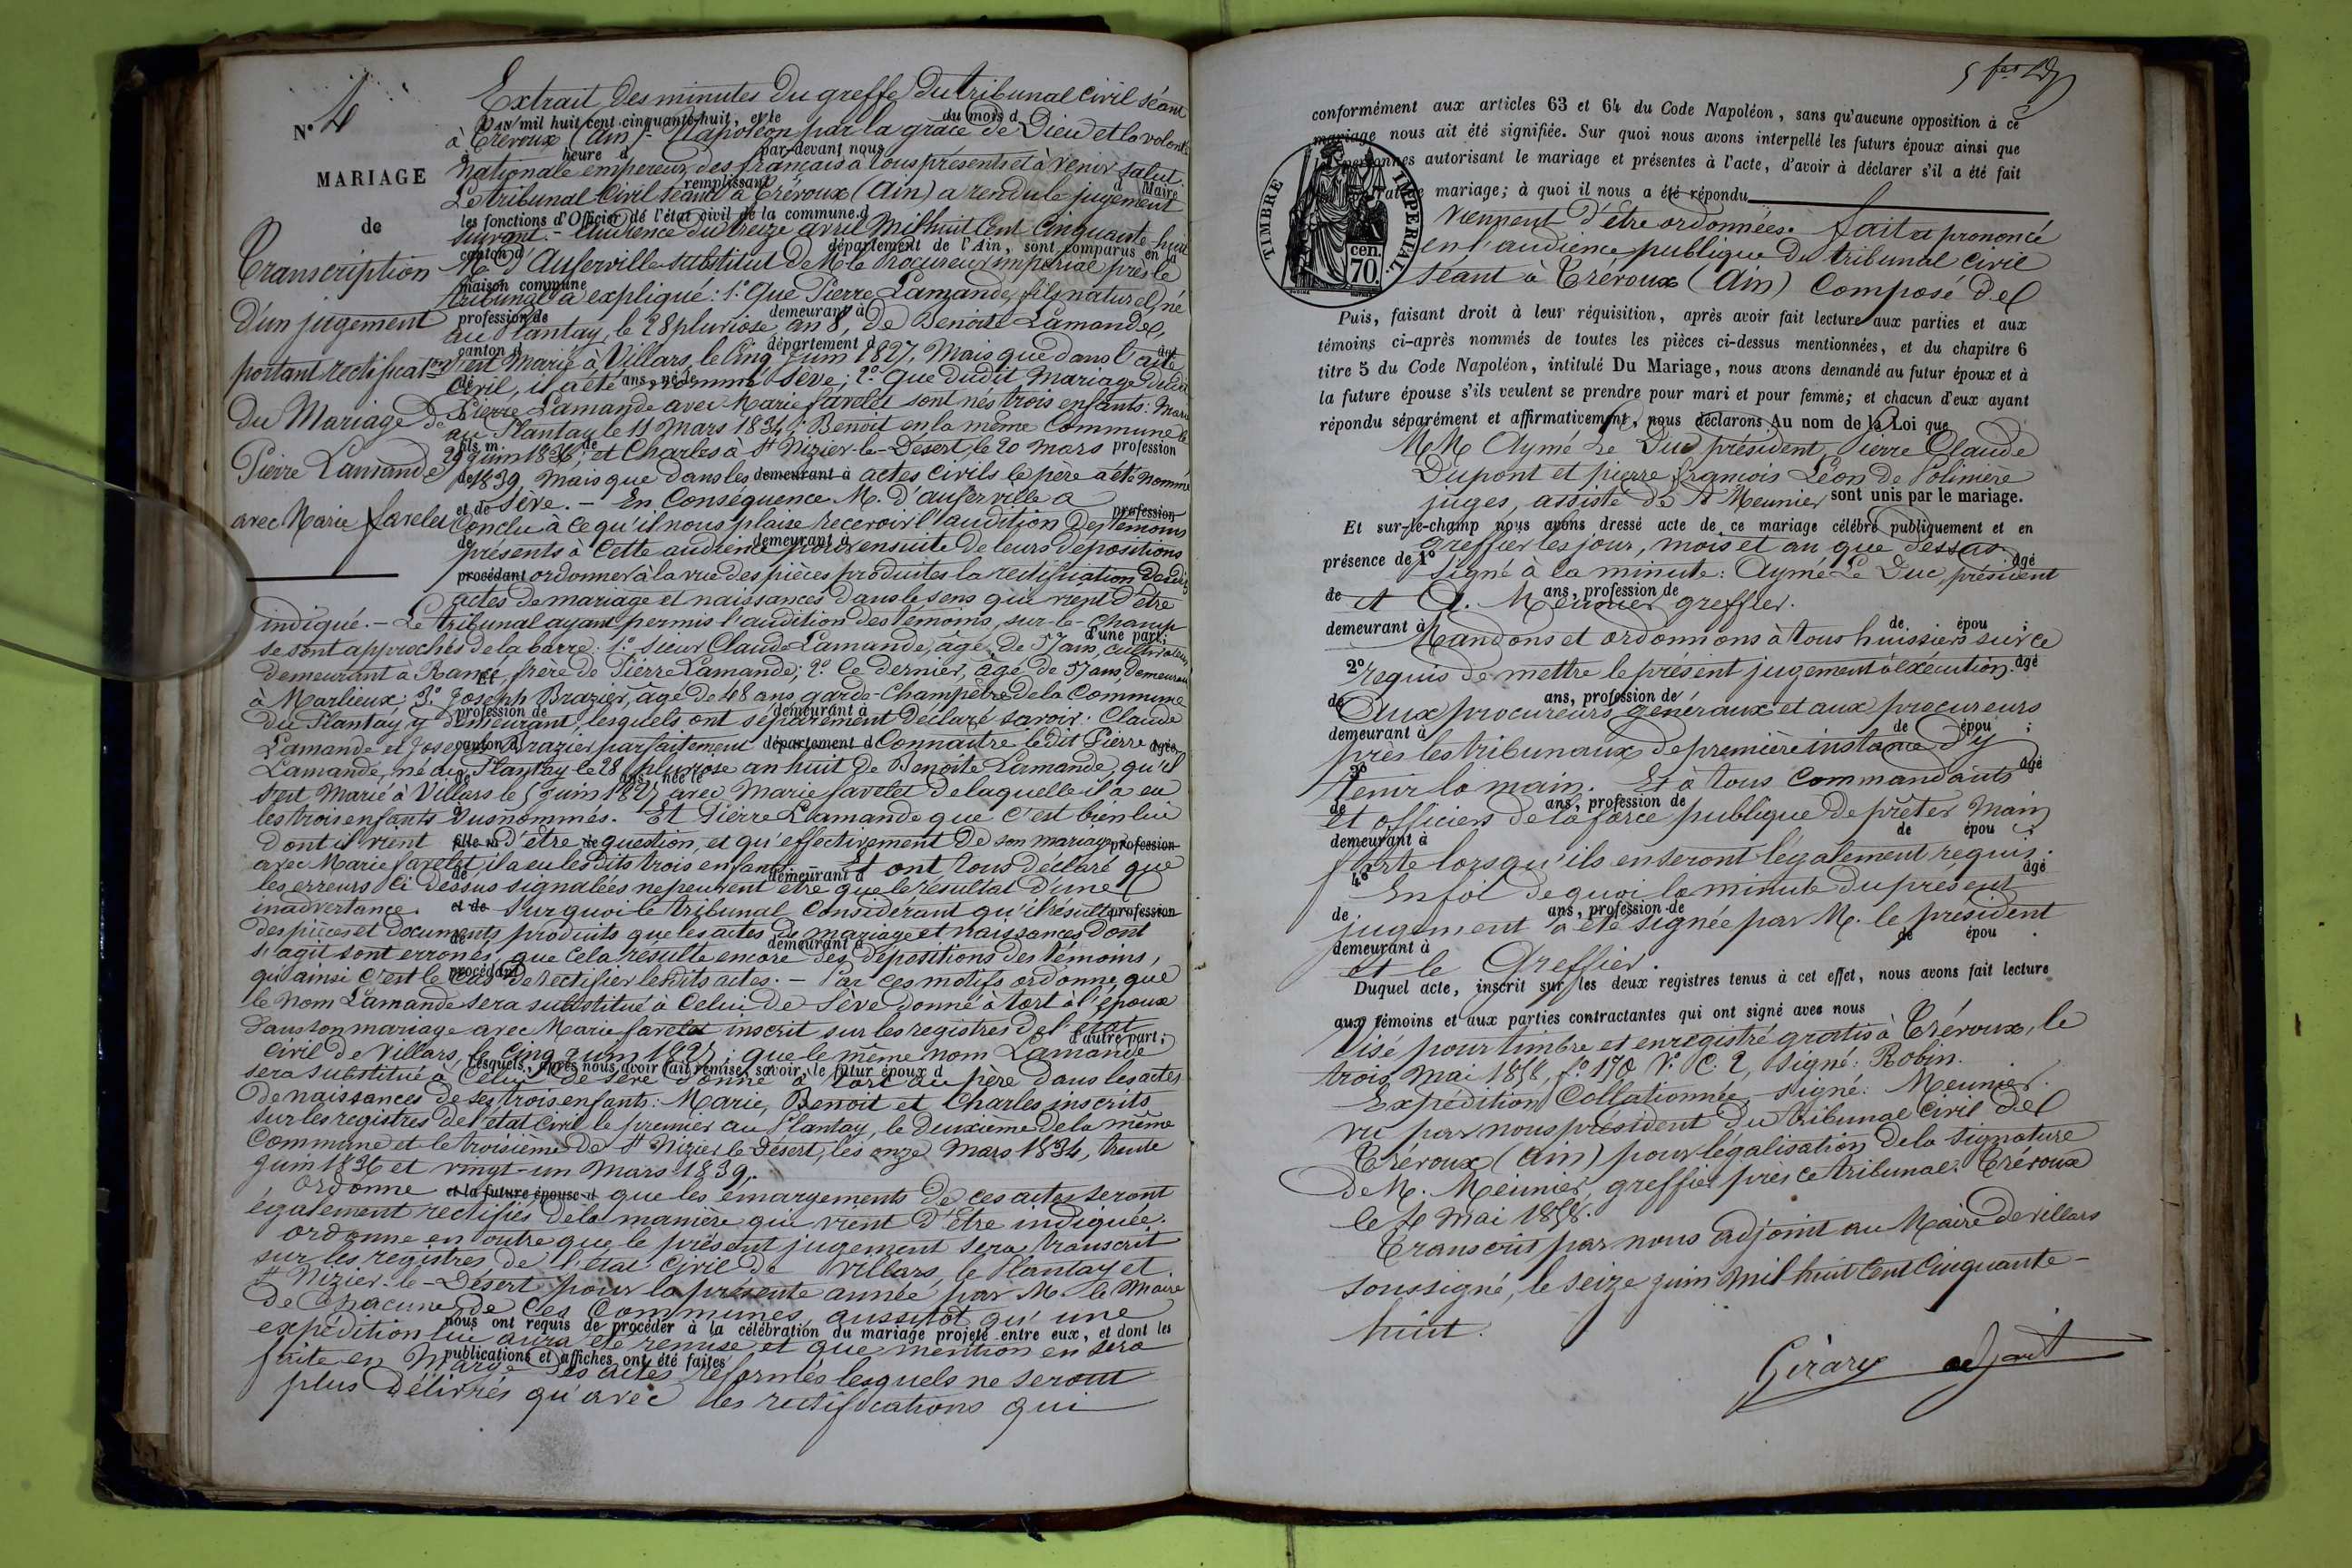 N° 4
MARIAGE
de
Transcription
d'un jugement
portant rectificat.on
du Mariage de
Pierre Lamande
avec Marie favelet
Extrait des minutes du greffe du tribunal civil séant
L'AN mil huit cent cinquante-huit, et le du mois d
à Trévoux (Ain) - Napoléon par la grâce de Dieu et la volonté
heure d par-devant nous
nationale empereur des français à tous présents et à venir salut.
remplissant d Maire
Le tribunal Civil séant à Trévoux (Ain) a rendu le jugement
les fonctions d'Officier de l'état civil de la commune d
suivant. - Audience du treize avril Mil huit Cent Cinquante-huit
canton d département de l'Ain, sont comparus en la
M. d'Auferville substitut de M. le Procureur impérial près le
maison commune
tribunal a expliqué: 1.° Que Pierre Lamande, fils naturel, né
profession de demeurant à
au Plantay, le 28 pluviose an 8, de Benoite Lamande,
canton d département d
s'est Marié à Villars, le Cinq Juin 1827, Mais que dans l'acte
de ans, né le
Civil, il a été nommé Sève; 2.° Que dudit Mariage dudit
Pierre Lamande avec Marie favelet sont nés trois enfants: Marie
au Plantay le 11 Mars 1834; Benoit en la même Commune le
fils m. de profession
29 Juin 1836; et Charles à St Nizier-le-Désert, le 20 mars
de 1839, Mais que dans les demeurant à actes civils le père a été nommé
et de Sève. - En Conséquence M. d'auferville a profession
Conclu à ce qu'il nous plaise recevoir l'audition des témoins
de demeurant à
présents à Cette audience pour ensuite de leurs dépositions
procédant ordonner à la vue des pièces produites la rectification desdits
actes de mariage et naissances dans le sens qui vient d'être
indiqué. - Le tribunal ayant permis l'audition des témoins, sur-le-champ
d'une part;
se sont approchés de la barre: 1.° Sieur Claude Lamande, âgé de 57 ans, cultivateur,
demeurant à Rancé, frère de Pierre Lamande; 2.° Ce dernier, âgé de 57 ans, demeurant
Et
à Marlieux; 3.° Joseph Brazier, âgé de 48 ans garde-Champêtre de la Commune
profession de demeurant à
du Plantay, y demeurant, lesquels ont séparément déclaré savoir: Claude
Lamande et Joseph canton d Brazier parfaitement département d Connaître ledit Pierre agée
Lamande, né au Plantay le 28 pluviose an huit de Benoite Lamande, qu'il
de ans, née le
s'est Marié à Villars le 5 Juin 1827 avec Marie favelet de laquelle il a eu
les trois enfants susnommés. - Et Pierre Lamande que c'est bien lui
dont il vient fille m d'être de question, et qu'effectivement de son mariage profession
avec Marie favelet, il a eu lesdits trois enfants. - Et ont tous déclaré que
de demeurant à
les erreurs ci dessus signalées ne peuvent être que le résultat d'une
inadvertance. et de Sur quoi le tribunal Considérant qu'il résulte profession
des pièces et documents produits que les actes de mariage et naissances dont
de demeurant à
s'agit sont erronés, que cela résulte encore des dépositions des témoins,
procédant
qu'ainsi c'est le cas de rectifier lesdits actes. - Par ces motifs ordonne que
le nom Lamande sera substitué à Celui de Sève donné à tort à l'époux
dans son mariage avec Marie favelet inscrit sur les registres de l'état
d'autre part;
Civil de Villars, le Cinq Juin 1827; que le même nom Lamande
lesquels, après nous avoir fait remise, savoir, le futur époux d
sera substitué à Celui de Sève donné à tort au père dans les actes
de naissances de ses trois enfants: Marie, Benoit et Charles inscrits
sur les registres de l'état civil le premier au Plantay, le deuxième de la même
Commune et le troisième de St Nizier le Désert, les onze Mars 1834, trente
Juin 1836 et vingt-un Mars 1839.
Ordonne et la future épouse d que les émargements de ces actes seront
également rectifiés de la manière qui vient d'être indiquée.
Ordonne en outre que le présent jugement sera transcrit
sur les registres de l'état civil de Villars, le Plantay et
St Nizier-le-Désert pour la présente année par M. le Maire
de Chacune de ces Communes, aussitôt qu'une
nous ont requis de procéder à la célébration du mariage projeté entre eux, et dont les
expédition lui aura été remise et que mention en sera
publications et affiches ont été faites
faite en Marge des actes réformés lesquels ne seront
plus délivrés qu'avec les rectifications qui
conformément aux articles 63 et 64 du Code Napoléon, sans qu'aucune opposition à ce
mariage nous ait été signifiée. Sur quoi nous avons interpellé les futurs époux ainsi que
les personnes autorisant le mariage et présentes à l'acte, d'avoir à déclarer s'il a été fait
mariage; à quoi il nous a été répondu
TIMBRE IMPERIAL
cen.
70.
viennent d'être ordonnées. fait et prononcé
en l'audience publique du tribunal civil
séant à Trévoux (Ain) Composé de
Puis, faisant droit à leur réquisition, après avoir fait lecture aux parties et aux
témoins ci-après nommés de toutes les pièces ci-dessus mentionnées, et du chapitre 6
titre 5 du Code Napoléon, intitulé Du Mariage, nous avons demandé au futur époux et à
la future épouse s'ils veulent se prendre pour mari et pour femme; et chacun d'eux ayant
répondu séparément et affirmativement, nous déclarons Au nom de la Loi que
MM Aymé Le Duc président, Pierre Claude
Dupont et pierre françois Léon de Polinière
juges, assisté de A Meunier sont unis par le mariage.
Et sur-le-champ nous avons dressé acte de ce mariage célébré publiquement et en
greffier les jour, mois et an que dessus.
présence de 1° âgé
Signé à la minute: Aymé Le Duc, président
de ans, profession de
et A. Meunier greffier.
demeurant à de épou ;
Mandons et ordonnons à tous huissiers sur ce
2° âgé
requis de mettre le présent jugement à exécution.
de ans, profession de
Aux procureurs généraux et aux procureurs
demeurant à de épou ;
près les tribunaux de première instance d'y
3° âgé
tenir la main. Et à tous Commandants
de ans, profession de
et officiers de la force publique de prêter main
demeurant à de épou ;
forte lorsqu'ils en seront légalement requis.
4° âgé
En foi de quoi la minute du présent
de ans, profession de
jugement a été signée par M. le président
demeurant à de épou .
et le Greffier.
Duquel acte, inscrit sur les deux registres tenus à cet effet, nous avons fait lecture
aux témoins et aux parties contractantes qui ont signé avec nous
Visé pour timbre et enregistré gratis à Trévoux, le
trois Mai 1858, f.° 170 V.° C. 2, signé: Robin.
Expédition Collationnée, signé: Meunier.
vu par nous président du tribunal Civil de
Trévoux (Ain) pour légalisation de la signature
de M. Meunier, greffier près ce tribunal. Trévoux
le 4 Mai 1858.
Transcrit par nous adjoint au Maire de villars
soussigné, le seize juin mil huit Cent Cinquante-
huit.
Girary adjoint